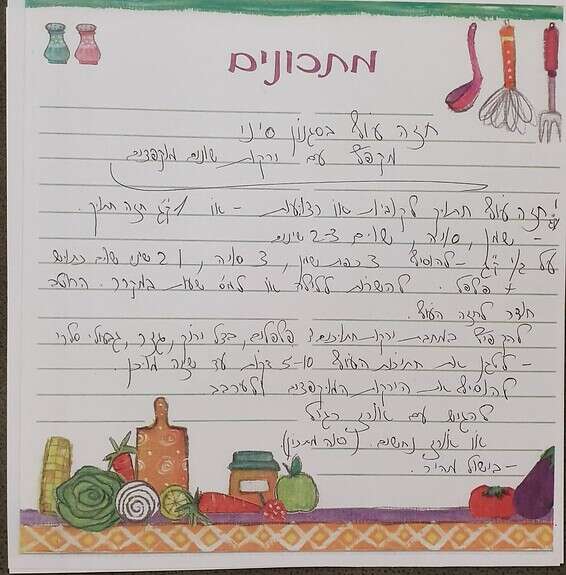 מתכונים
חזה עוף בסגנון סיני
מוקפץ עם ירקות שונים מוקפצים
חזה עוף חתוך לקוביות או רצועות - או 1 ק"ג חזה חתוך.
- שמן, סויה, שום 2-3 שיניים
על 1/2 ק"ג - להוסיף 3 כפות שמן, 3 סויה, ו 2 שיני שום כתוש
+ פלפל. להשרות ללילה או למס' שעות במקרר.
חודר לחזה העוף.
להקפיץ במחבת ירקות חתוכים: פלפלים, בצל ירוק, גזר, גבעולי סלרי
- לטגן את חתיכות העוף 5-10 דקות עד שיהיה מוכן.
להוסיף את הירקות המוקפצים ולערבב
להגיש עם אורז רגיל
או אורז
- בישול מהיר.